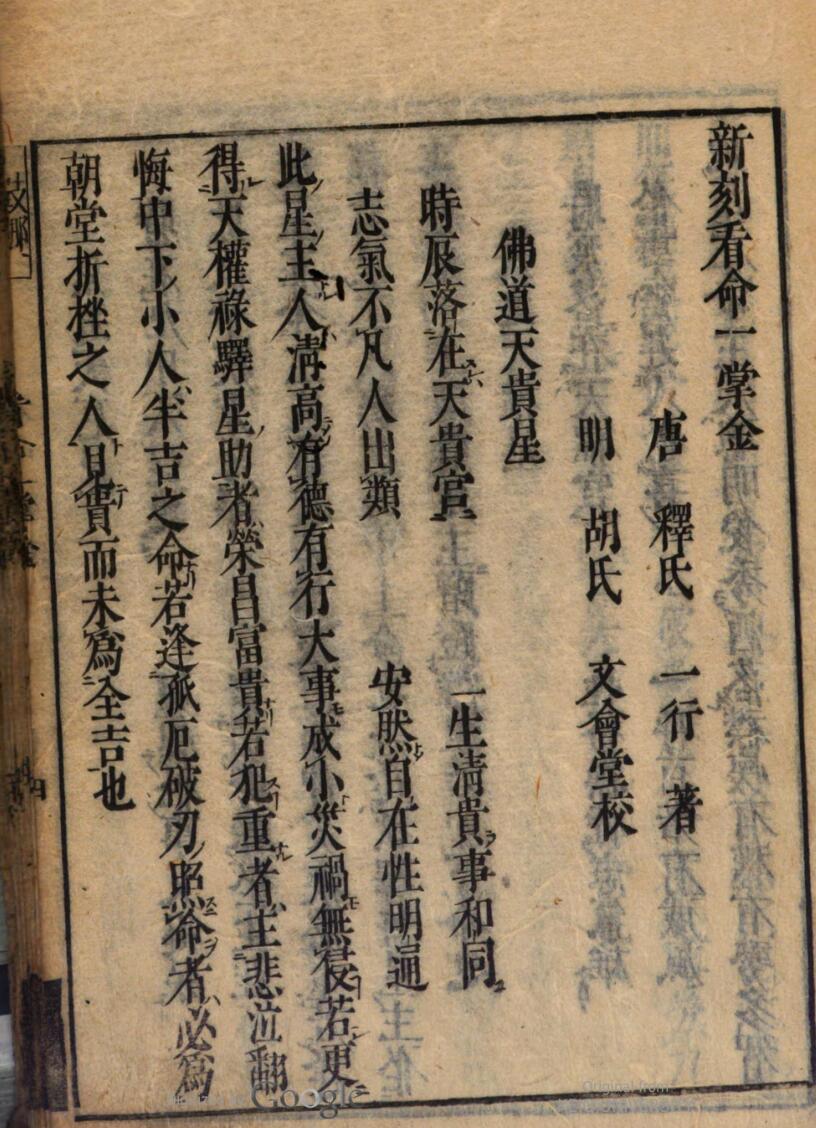 新刻看命一掌金
唐 釋氏 一行 著
明 胡氏 文會堂校
佛道天貴星
時辰落在天貴宮 一生淸貴事和同
志氣不凡人出類 安然自在性明通
此星主人淸高有德有行大事成小災禍無侵若更
得天權祿驛星助者榮昌富貴若犯重者主悲泣翻
悔中下小人半吉之命若逢孤厄破刃照命者必爲
朝堂折挫之人見貴而未爲全吉也
Google
Original from